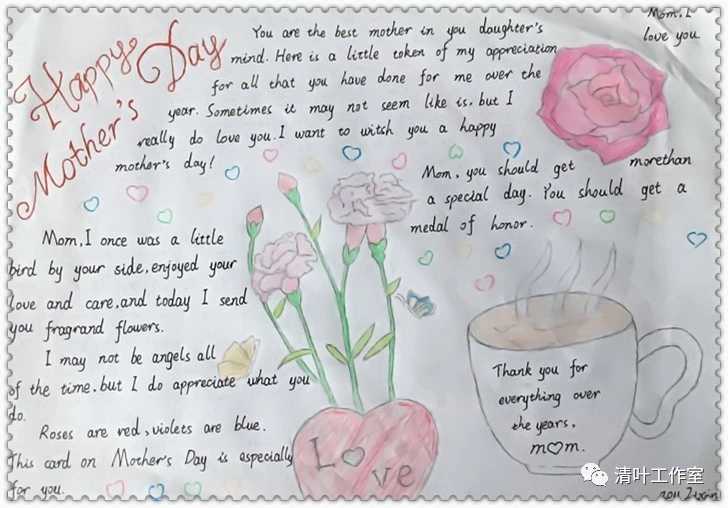 Happy
Mother's Day
You are the best mother in you daughter's
mind. Here is a little token of my appreciation
for all that you have done for me over the
year. Sometimes it may not seem like is. but I
really do love you. I want to witsh you a happy
mother's day!
Mom, I
love you
Mom, you should get morethan
a special day. You should get a
medal of honor.
Mom, I once was a little
bird by your side, enjoyed your
love and care, and today I send
you fragrand flowers.
I may not be angels all
of the time. but I do appreciate what you
do.
Roses are red, violets are blue.
This card on Mother's Day is especially
for you.
Love
Thank you for
everything over
the years,
m♡m.
清叶工作室